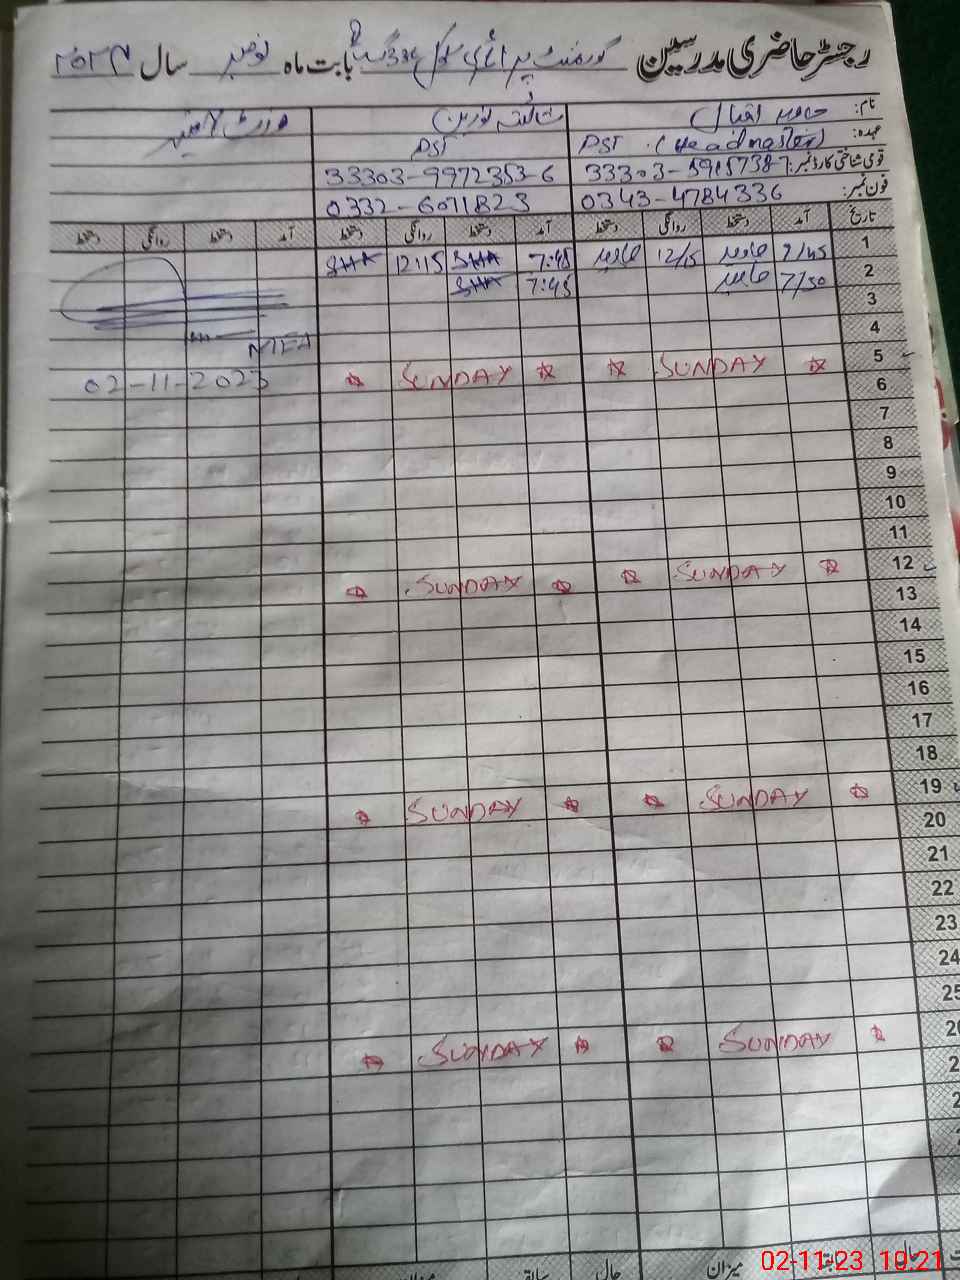 رجسٹر حاضری مدرسین گورنمنٹ پرائمری سکول 336 گ ب بابت ماہ نومبر سال
نام: جاوید اقبال
عہدہ: PST (Headmaster) PST
قومی شناختی کارڈ نمبر: 33303-5915738-7 33303-9972353-6
فون نمبر: 0343-4784336 0332-6071823
تاریخ آمد دستخط روانگی دستخط آمد دستخط روانگی دستخط آمد دستخط روانگی دستخط
1 7/45 جاوید 12/15 جاوید 7:45 SHA 12:15 SHA
2 7/50 جاوید 7:45 SHA
3
4
5 SUNDAY SUNDAY
02-11-2023
6
7
8
9
10
11
12 SUNDAY SUNDAY
13
14
15
16
17
18
19 SUNDAY SUNDAY
20
21
22
23
24
25
SUNDAY SUNDAY
میزان سابقہ حالی
02-11-23 10:21